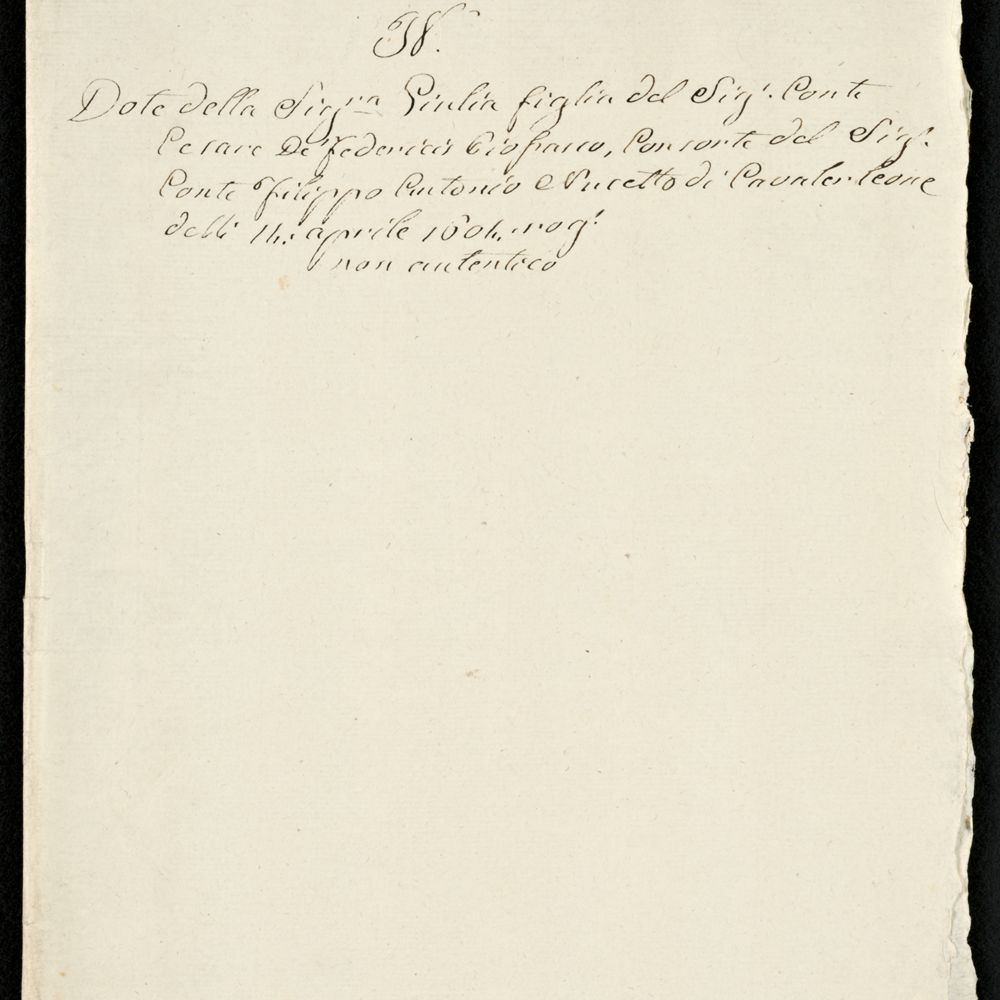 Dote della Sig.ra Giulia figlia del Sig.r Conte
Cesare De Federicis Ciofrasco, Consorte del Sig.r
Conte Filippo Antonio Nucetto di Cavalerleone
delli 14. aprile 1604. rog.
non autentico